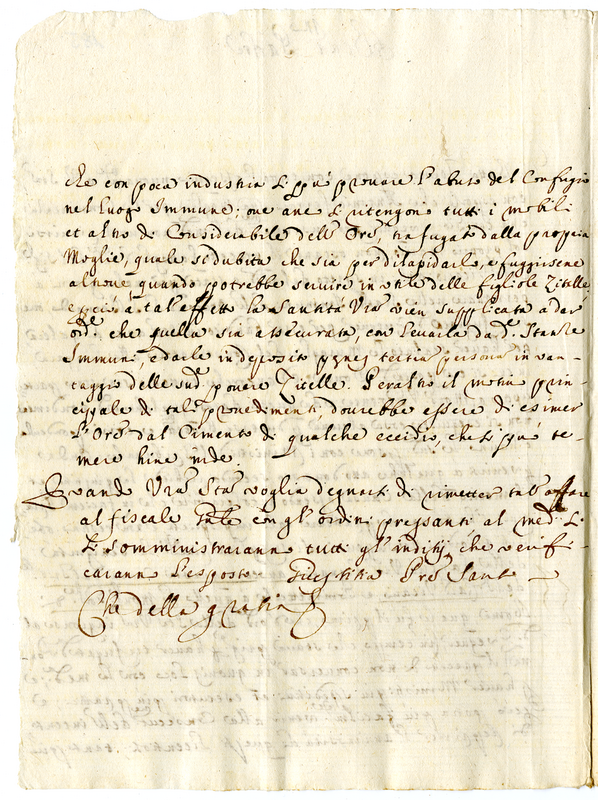 che con poca industria si può provare l'abuso del Confugio
nel luogo Immune; ove anc si ritengono tutti i mobili
et altro di Considerabile dell' Ore, trafugato dalla propria
Moglie, quale si dubita che sia per dilapidarlo, e fuggirsene
altrove quando potrebbe servire in utile delle figliole Zitelle
e perciò a tal' effetto la Santità Vra vien supplicata a dar
ord.e che quella sia assecurata, con levarla da d.e Stanze
Immuni, e darle in deposito penes tertia persona in van-
taggio delle sud.e povere Zitelle. Peraltro il motivo prin-
cipale di tali provedimenti, dovrebbe essere di esimer
l'Ore dal Cimento di qualche eccidio, che si può te-
mere hinc inde
Quando Vra Stà voglia degnarsi di rimetter tal' affare
al fiscale con gl' ordini pressanti al med.
si somministraranno tutti gl' inditij che verifi-
caranno l'esposto Giustitia Pro Sant
Che della gratia